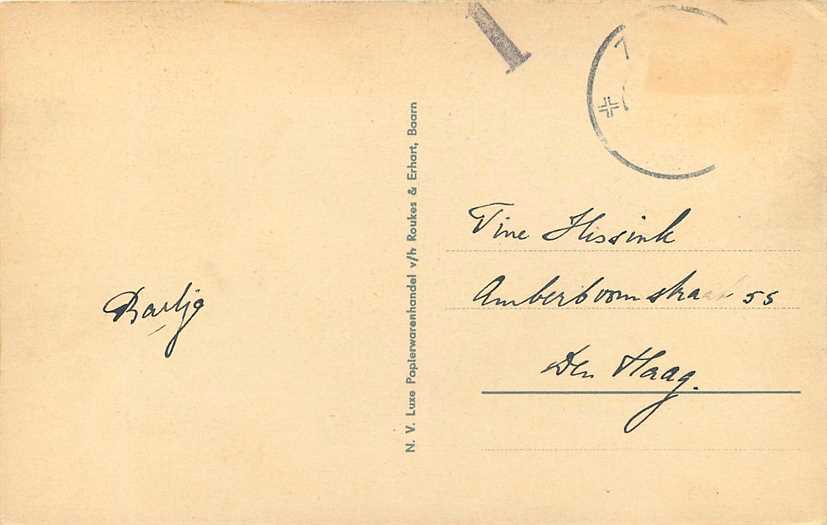 Bartje
N. V. Luxe Papierwarenhandel v/h Roukes & Erhart, Baarn
Tine Hissink
Amberboomstraat 55
Den Haag.